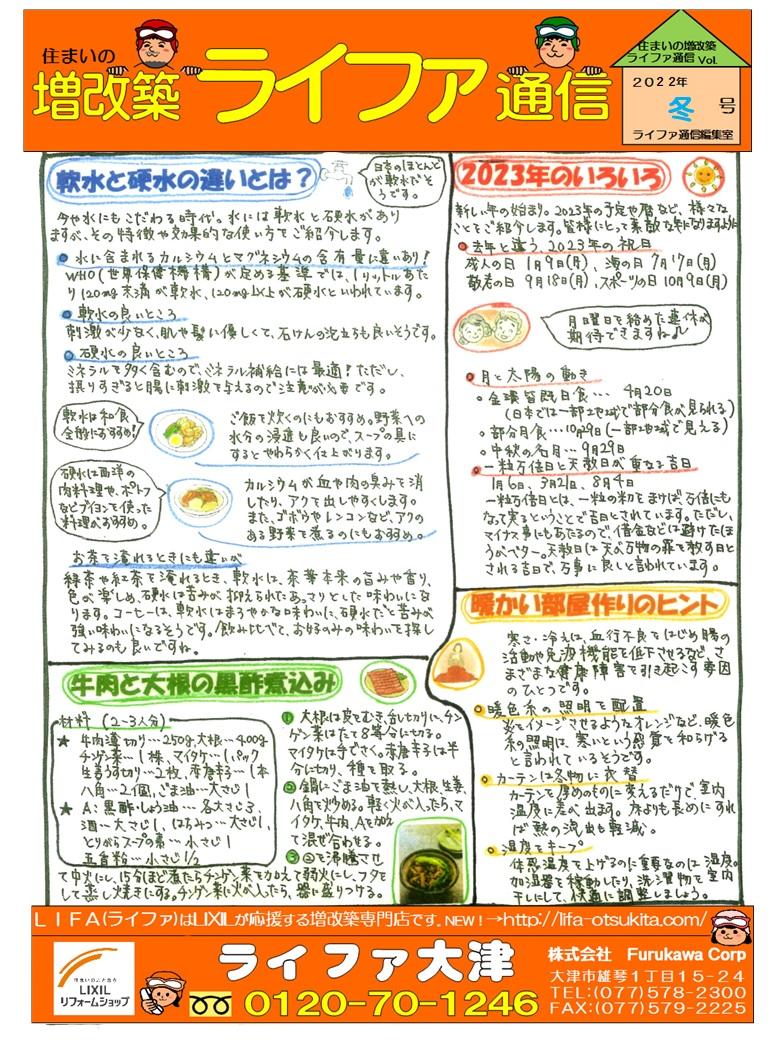 住まいの
増改築 ライファ通信
住まいの増改築
ライファ通信 Vol.
2022年
冬 号
ライファ通信編集室
軟水と硬水の違いとは？
日本のほとんど
が軟水だそ
うです。
今や水にもこだわる時代。水には軟水と硬水があり
ますが、その特徴や効果的な使い方をご紹介します。
水に含まれるカルシウムとマグネシウムの含有量に違いあり!
WHO(世界保健機構)が定める基準では、1リットルあた
り120mg未満が軟水、120mg以上が硬水といわれています。
軟水の良いところ
刺激が少なく、肌や髪に優しくて、石けんの泡立ちも良いそうです。
硬水の良いところ
ミネラルを多く含むので、ミネラル補給には最適!ただし、
摂りすぎると腸に刺激を与えるので注意が必要です。
軟水は和食
全般におすすめ!
ご飯を炊くのにもおすすめ。野菜への
水分の浸透も良いので、スープの具に
するとやわらかく仕上がります。
硬水は西洋の
肉料理や、ポトフ
などブイヨンを使った
料理がおすすめ。
カルシウムが血や肉の臭みを消
したり、アクを出しやすくします。
また、ゴボウやレンコンなど、アクの
ある野菜を煮るのにもおすすめ。
お茶を淹れるときにも違いが
緑茶や紅茶を淹れるとき、軟水は、茶葉本来の旨みや香り、
色が楽しめ、硬水は苦みが抑えられたあっさりとした味わいにな
ります。コーヒーは、軟水はまろやかな味わいに、硬水だと苦みが
強い味わいになるそうです。飲み比べて、お好みの味わいを探し
てみるのも良いですね。
2023年のいろいろ
新しい年の始まり。2023年の予定や暦など、様々な
ことをご紹介します。皆様にとって素敵な年になりますように
去年と違う、2023年の祝日
成人の日 1月9日(月)、海の日 7月17日(月)
敬老の日 9月18日(月)、スポーツの日 10月9日(月)
月曜日を絡めた連休が
期待できますね♪
月と太陽の動き
金環皆既日食… 4月20日
(日本では一部地域で部分食が見られる)
部分月食…10月29日(一部地域で見える)
中秋の名月…9月29日
一粒万倍日と天赦日が重なる吉日
1月6日、3月21日、8月4日
一粒万倍日とは、一粒の籾をまけば、万倍にも
なって実るということで吉日とされています。ただし、
マイナス事にもあたるので、借金などは避けたほ
うがベター。天赦日は天が万物の罪を赦す日と
される吉日で、万事に良いと言われています。
暖かい部屋作りのヒント
寒さ・冷えは、血行不良をはじめ腸の
活動や免疫機能を低下させるなど、さ
まざまな健康障害を引き起こす要因
のひとつです。
暖色系の照明を配置
炎をイメージさせるようなオレンジなど、暖色
系の照明は、寒いという感覚を和らげる
と言われているそうです。
カーテンは冬物に衣替
カーテンを厚めのものに変えるだけで、室内
温度に差が出ます。床よりも長めにすれ
ば熱の流出も軽減。
湿度をキープ
体感温度を上げるのに重要なのは湿度。
加湿器を稼動したり、洗濯物を室内
干しにして、快適に調整しましょう。
牛肉と大根の黒酢煮込み
材料(2~3人分)
★ 牛肉薄切り…250g、大根…400g
チンゲン菜…1株、マイタケ…1パック
生姜うす切り…2枚、赤唐辛子…1本
八角…2個、ごま油…大さじ1
★ A:黒酢・しょう油…各大さじ3、
酒…大さじ1、はちみつ…大さじ1、
とりがらスープの素…小さじ1
五香粉…小さじ1/2
① 大根は皮をむき、乱切りに、チン
ゲン菜はたて8等分に切る。
マイタケは手でさく。赤唐辛子は半
分に切り、種を取る。
② 鍋にごま油を熱し、大根、生姜、
八角を炒める。軽く火が入ったら、マ
イタケ、牛肉、Aを加え
て混ぜ合わせる。
③ ②を沸騰させ
て中火にし、15分ほど煮たらチンゲン菜を加えて弱火にし、フタを
して蒸し焼きにする。チンゲン菜に火が入ったら、器に盛りつける。
LIFA(ライファ)はLIXILが応援する増改築専門店です。NEW!→http://lifa-otsukita.com/
住まいのことなら
LIXIL
リフォームショップ
ライファ大津
0120-70-1246
株式会社 Furukawa Corp
大津市雄琴1丁目15-24
TEL:(077)578-2300
FAX:(077)579-2225